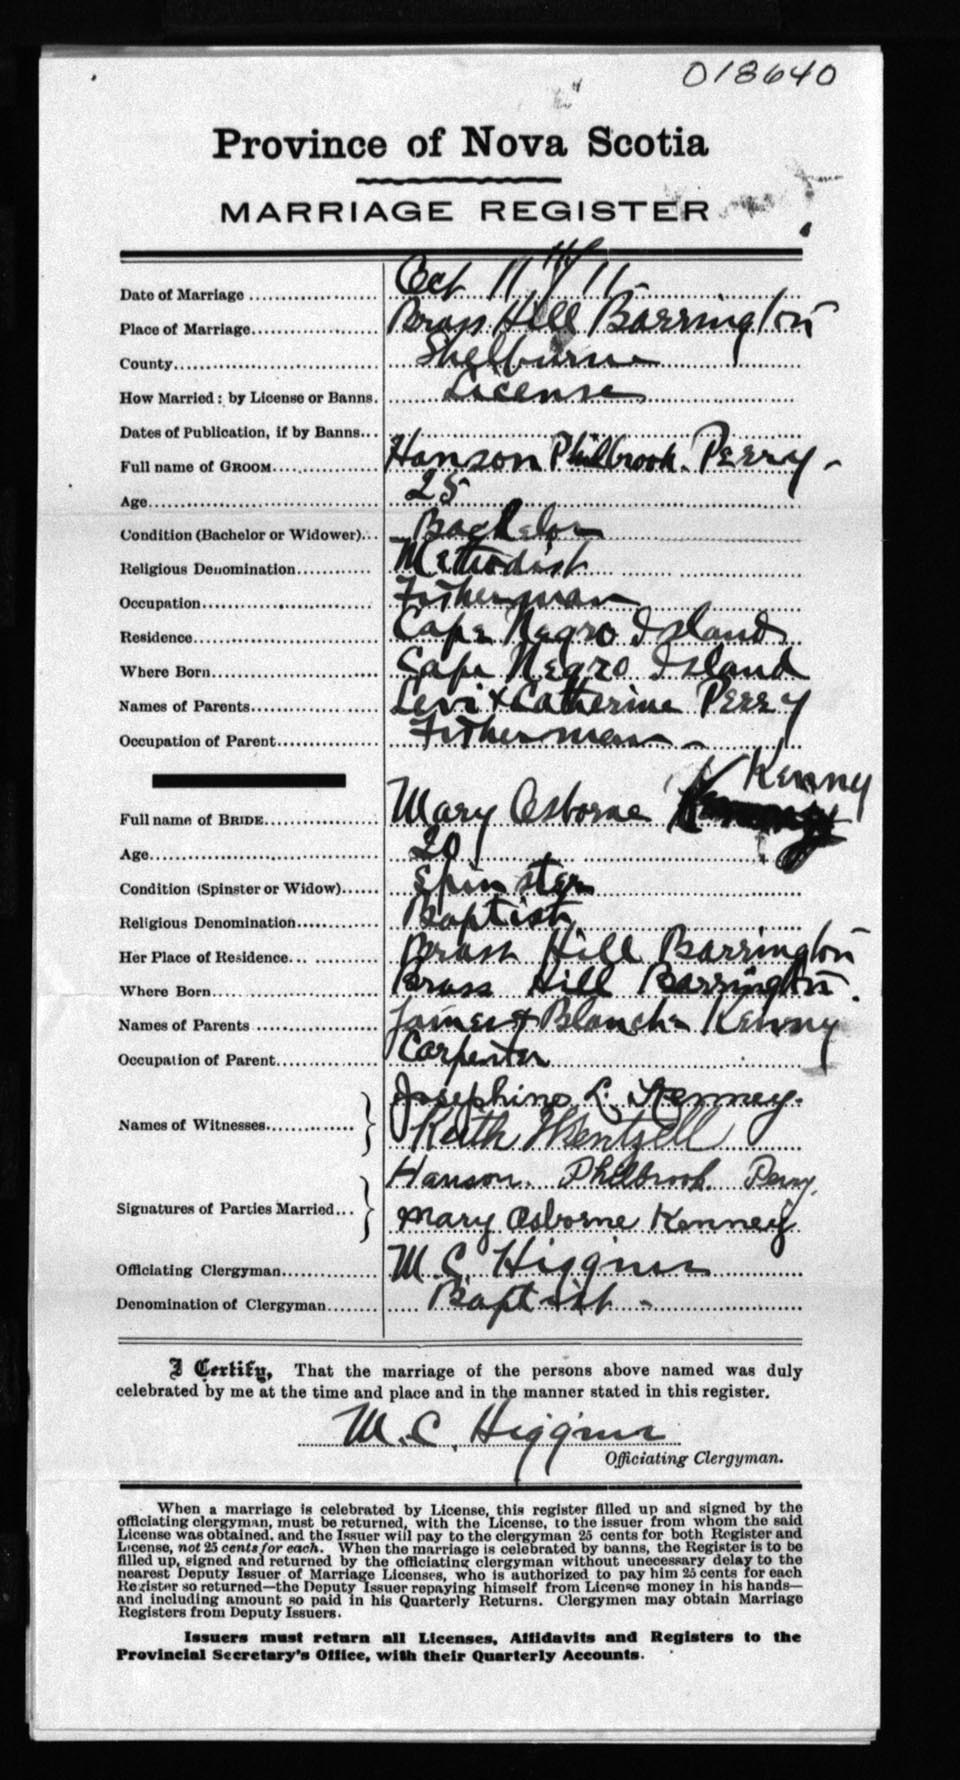 018640
Province of Nova Scotia
MARRIAGE REGISTER
Date of Marriage ........ Oct 11th / 11
Place of Marriage........ Brass Hill Barrington
County........ Shelburne
How Married: by License or Banns. License
Dates of Publication, if by Banns...
Full name of GROOM........ Hanson Philbrook Perry -
Age........ 25
Condition (Bachelor or Widower)... Bachelor
Religious Denomination........ Methodist
Occupation........ Fisherman
Residence........ Cape Negro Island
Where Born........ Cape Negro Island
Names of Parents........ Levi & Catherine Perry
Occupation of Parent........ Fisherman -
Kenny
Full name of BRIDE........ Mary Osborne
Age........ 20
Condition (Spinster or Widow)...... Spinster
Religious Denomination........ Baptist
Her Place of Residence........ Brass Hill Barrington
Where Born........ Brass Hill Barrington.
Names of Parents ........ James & Blanche Kenny
Occupation of Parent........ Carpenter
Josephine L. Kenney.
Names of Witnesses........
Keith Wentzell
Hanson. Philbrook. Perry.
Signatures of Parties Married...
Mary Osborne Kenney
Officiating Clergyman........ M. C. Higgins
Denomination of Clergyman........ Baptist -
I Certify, That the marriage of the persons above named was duly
celebrated by me at the time and place and in the manner stated in this register.
M. C. Higgins
Officiating Clergyman.
When a marriage is celebrated by License, this register filled up and signed by the
officiating clergyman, must be returned, with the License, to the issuer from whom the said
License was obtained, and the Issuer will pay to the clergyman 25 cents for both Register and
License, not 25 cents for each. When the marriage is celebrated by banns, the Register is to be
filled up, signed and returned by the officiating clergyman without unecessary delay to the
nearest Deputy Issuer of Marriage Licenses, who is authorized to pay him 25 cents for each
Register so returned—the Deputy Issuer repaying himself from License money in his hands—
and including amount so paid in his Quarterly Returns. Clergymen may obtain Marriage
Registers from Deputy Issuers.
Issuers must return all Licenses, Affidavits and Registers to the
Provincial Secretary's Office, with their Quarterly Accounts.